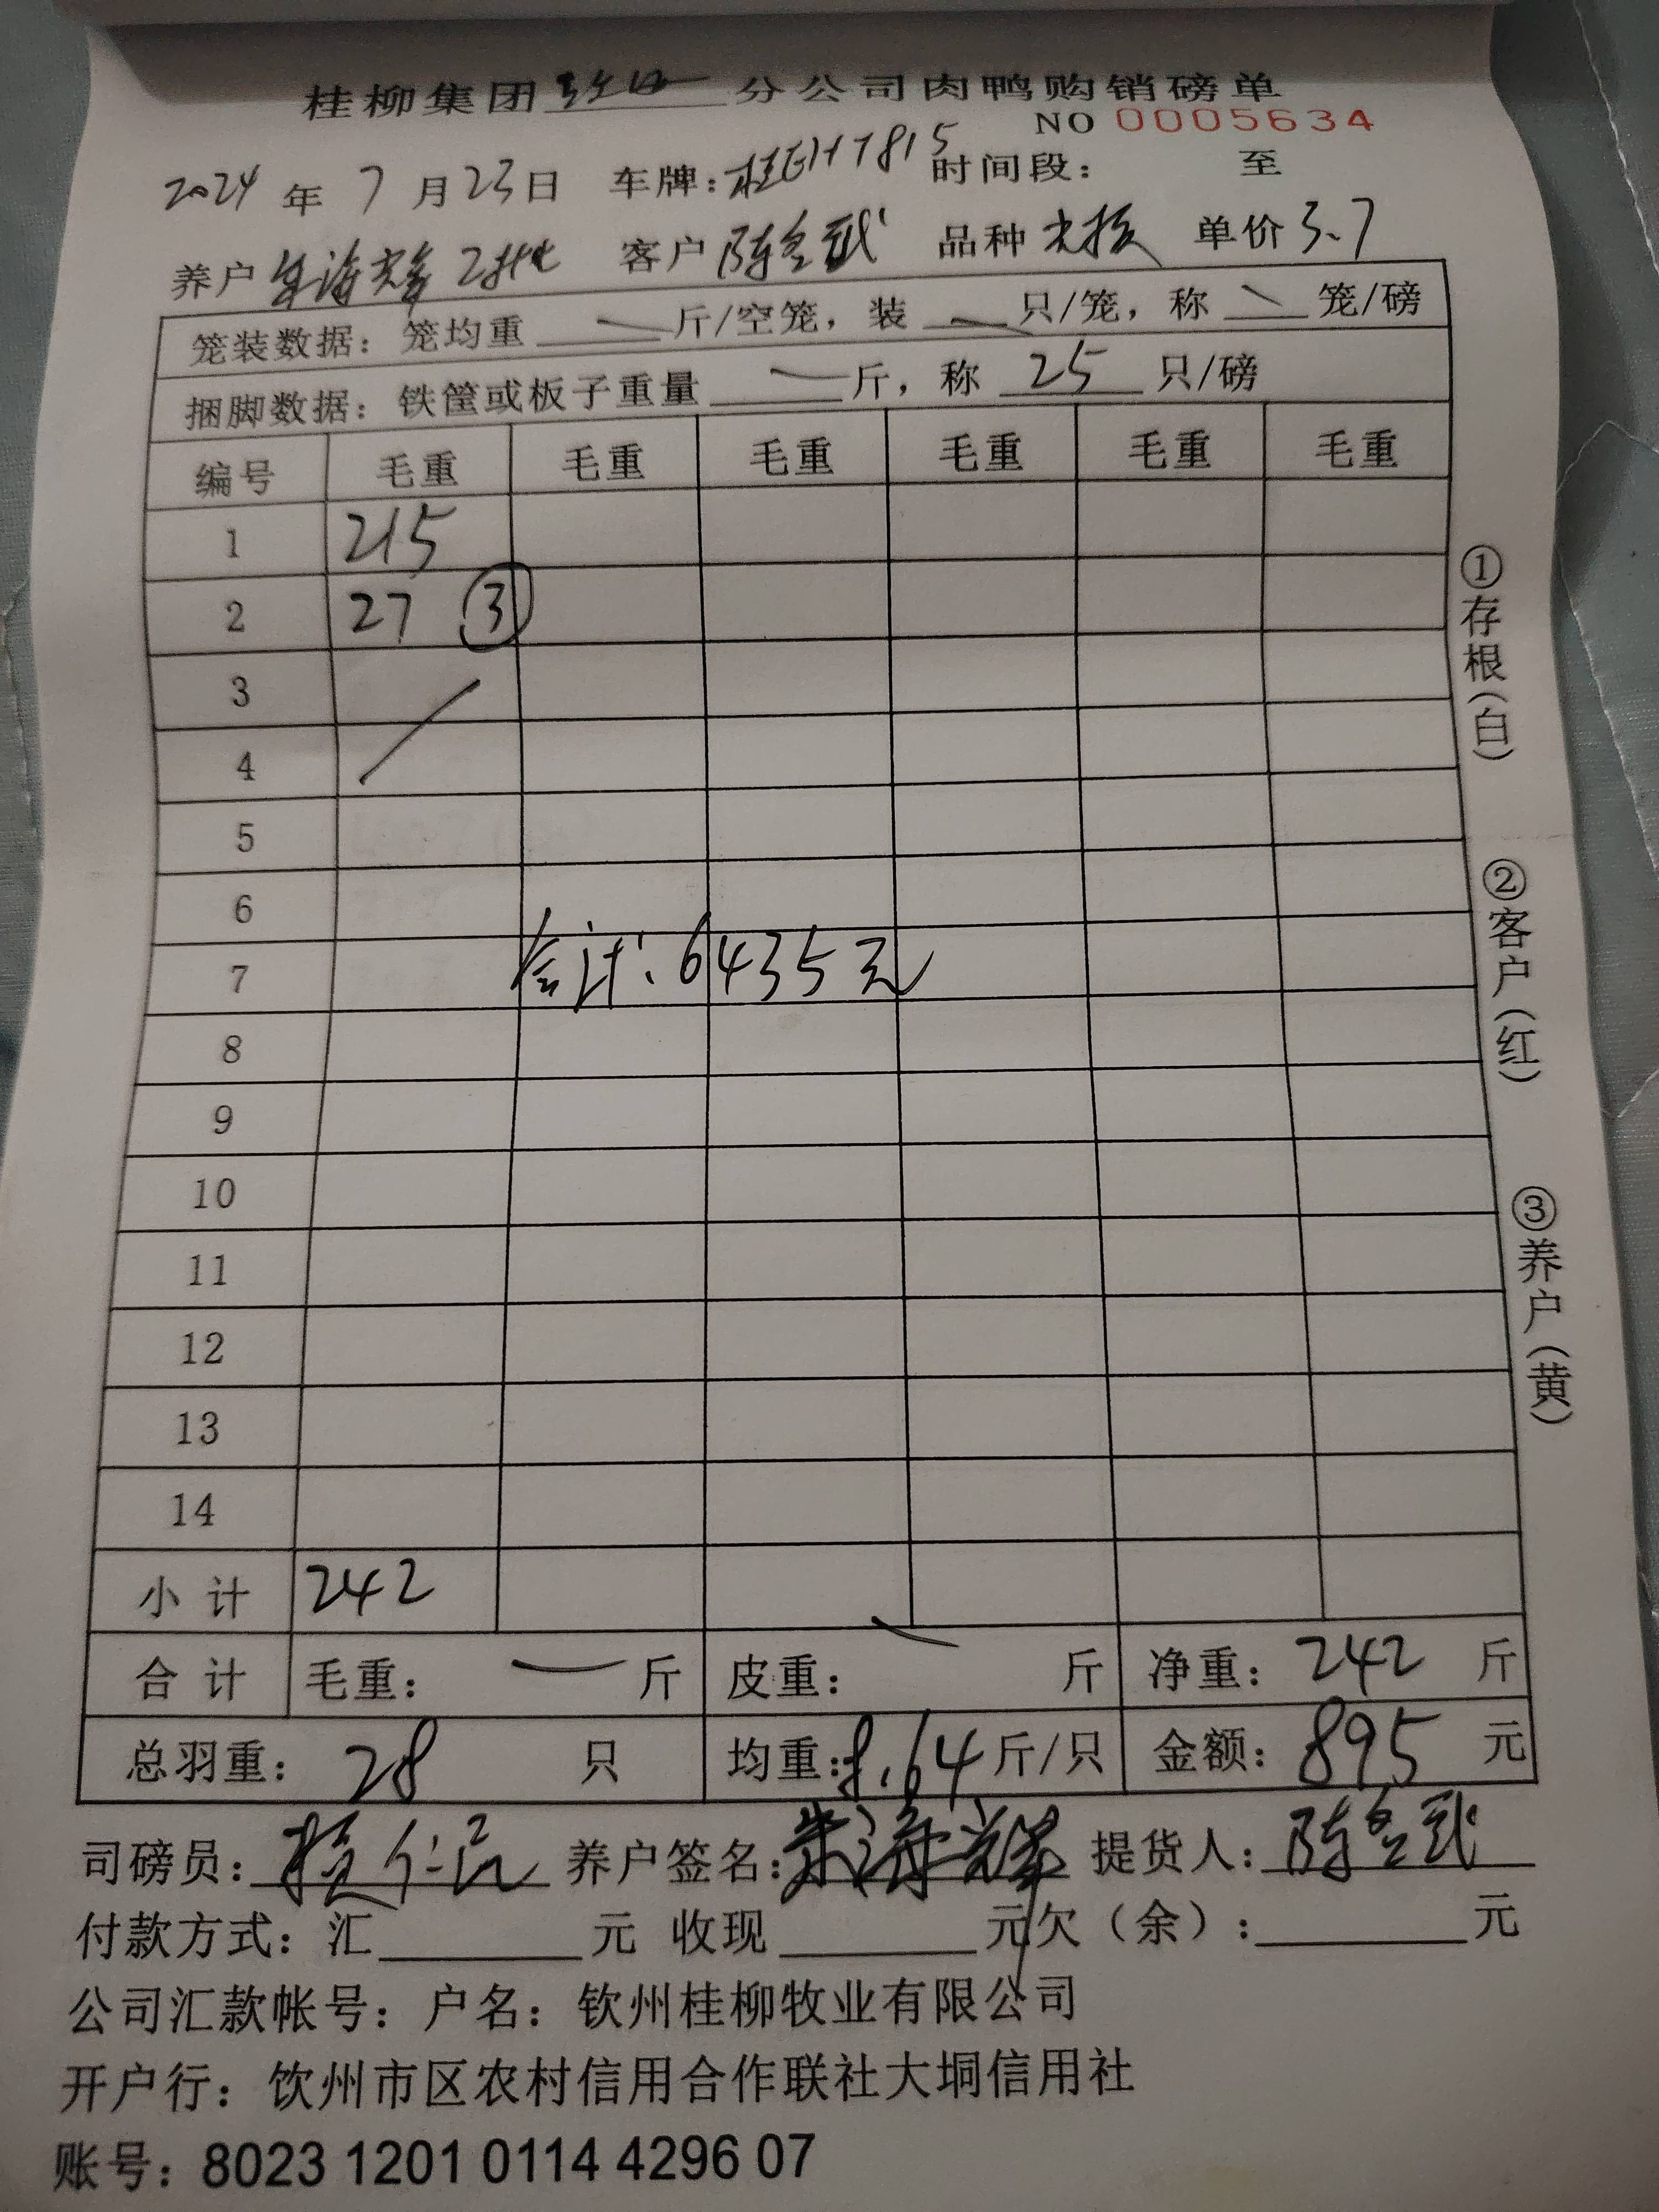 桂柳集团 分公司肉鸭购销磅单
NO 0005634
2024 年 7 月 23 日 车牌: 时间段: 至
养户 朱海辉 2批 客户 陈全武 品种 单价 3.7
笼装数据: 笼均重 — 斤/空笼, 装 — 只/笼, 称 — 笼/磅
捆脚数据: 铁筐或板子重量 — 斤, 称 25 只/磅
编号 毛重 毛重 毛重 毛重 毛重 毛重
1 215
2 27 ③
3
4
5
6
7 合计: 6435元
8
9
10
11
12
13
14
小计 242
合计 毛重: — 斤 皮重: — 斤 净重: 242 斤
总羽重: 28 只 均重: 8.64 斤/只 金额: 895 元
司磅员: 养户签名: 朱海辉 提货人: 陈全武
付款方式: 汇 元 收现 元 欠(余): 元
公司汇款帐号: 户名: 钦州桂柳牧业有限公司
开户行: 钦州市区农村信用合作联社大垌信用社
账号: 8023 1201 0114 4296 07
①存根(白)
②客户(红)
③养户(黄)